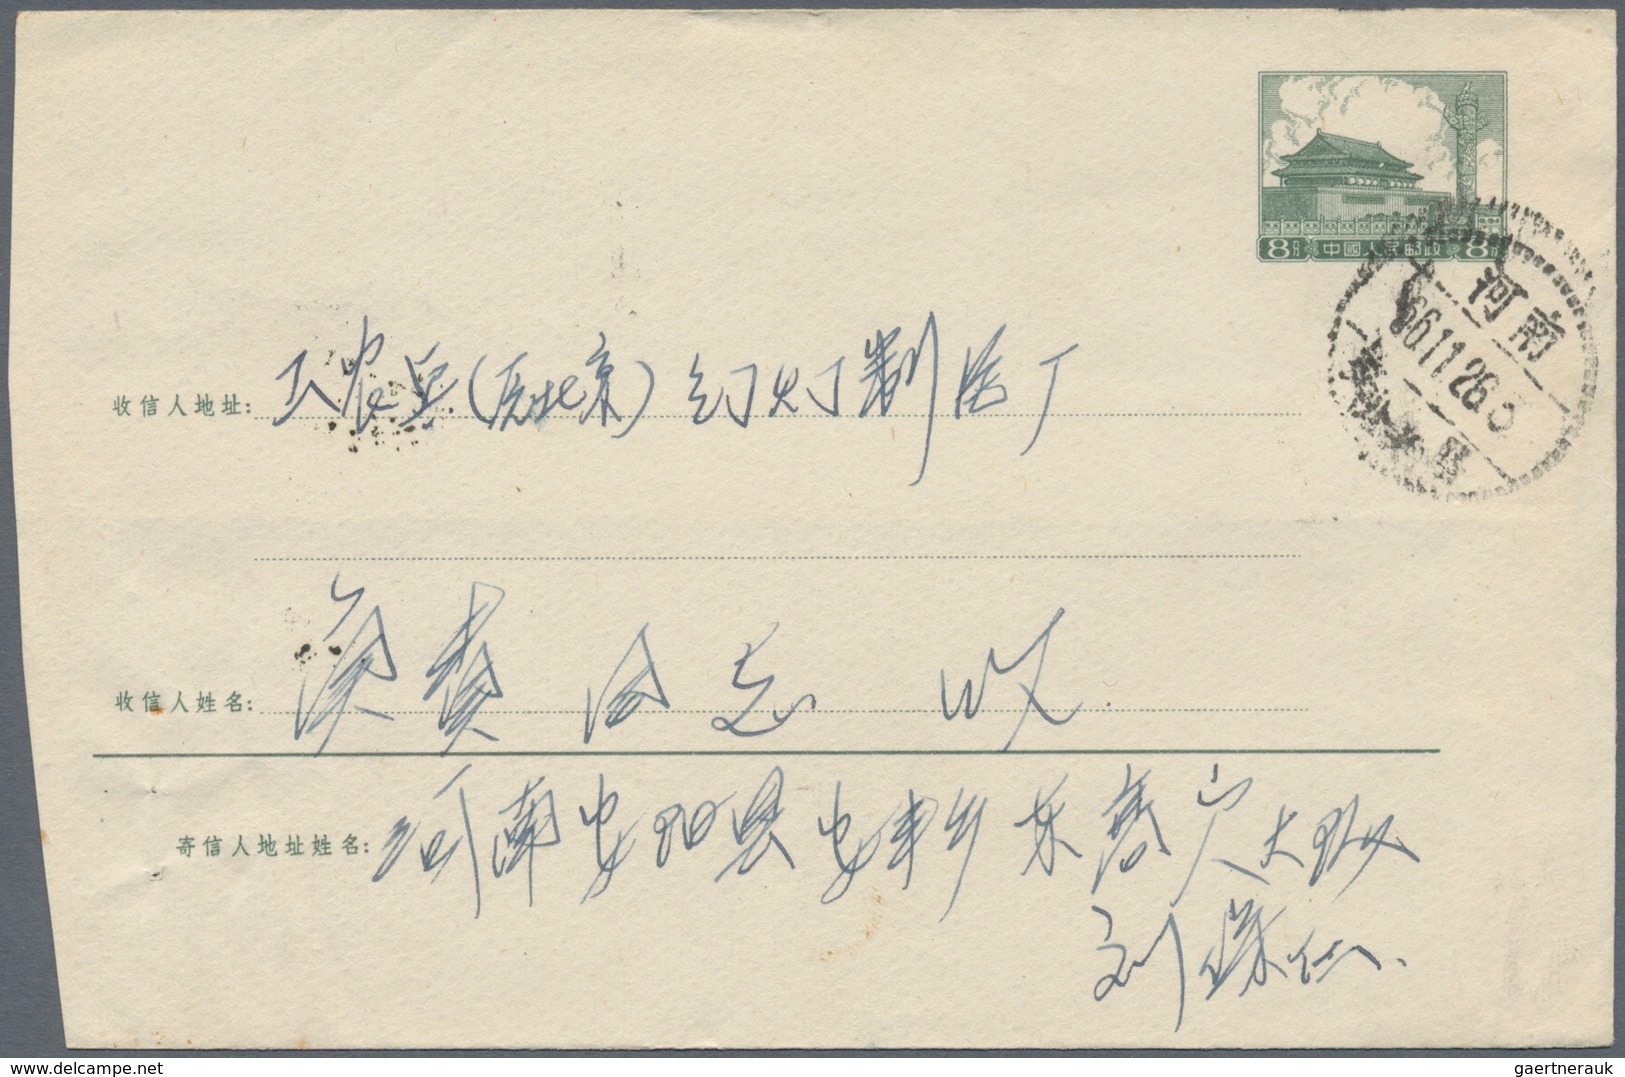 8分 中國人民邮政 8分
河南
66.11.26.
收信人地址: 工农兵(原北京)幻灯制造厂
收信人姓名: 同志 收
寄信人地址姓名: 河南安阳县安丰乡东高穴大队
刘保仁.
delcampe.net
gaertnerauk